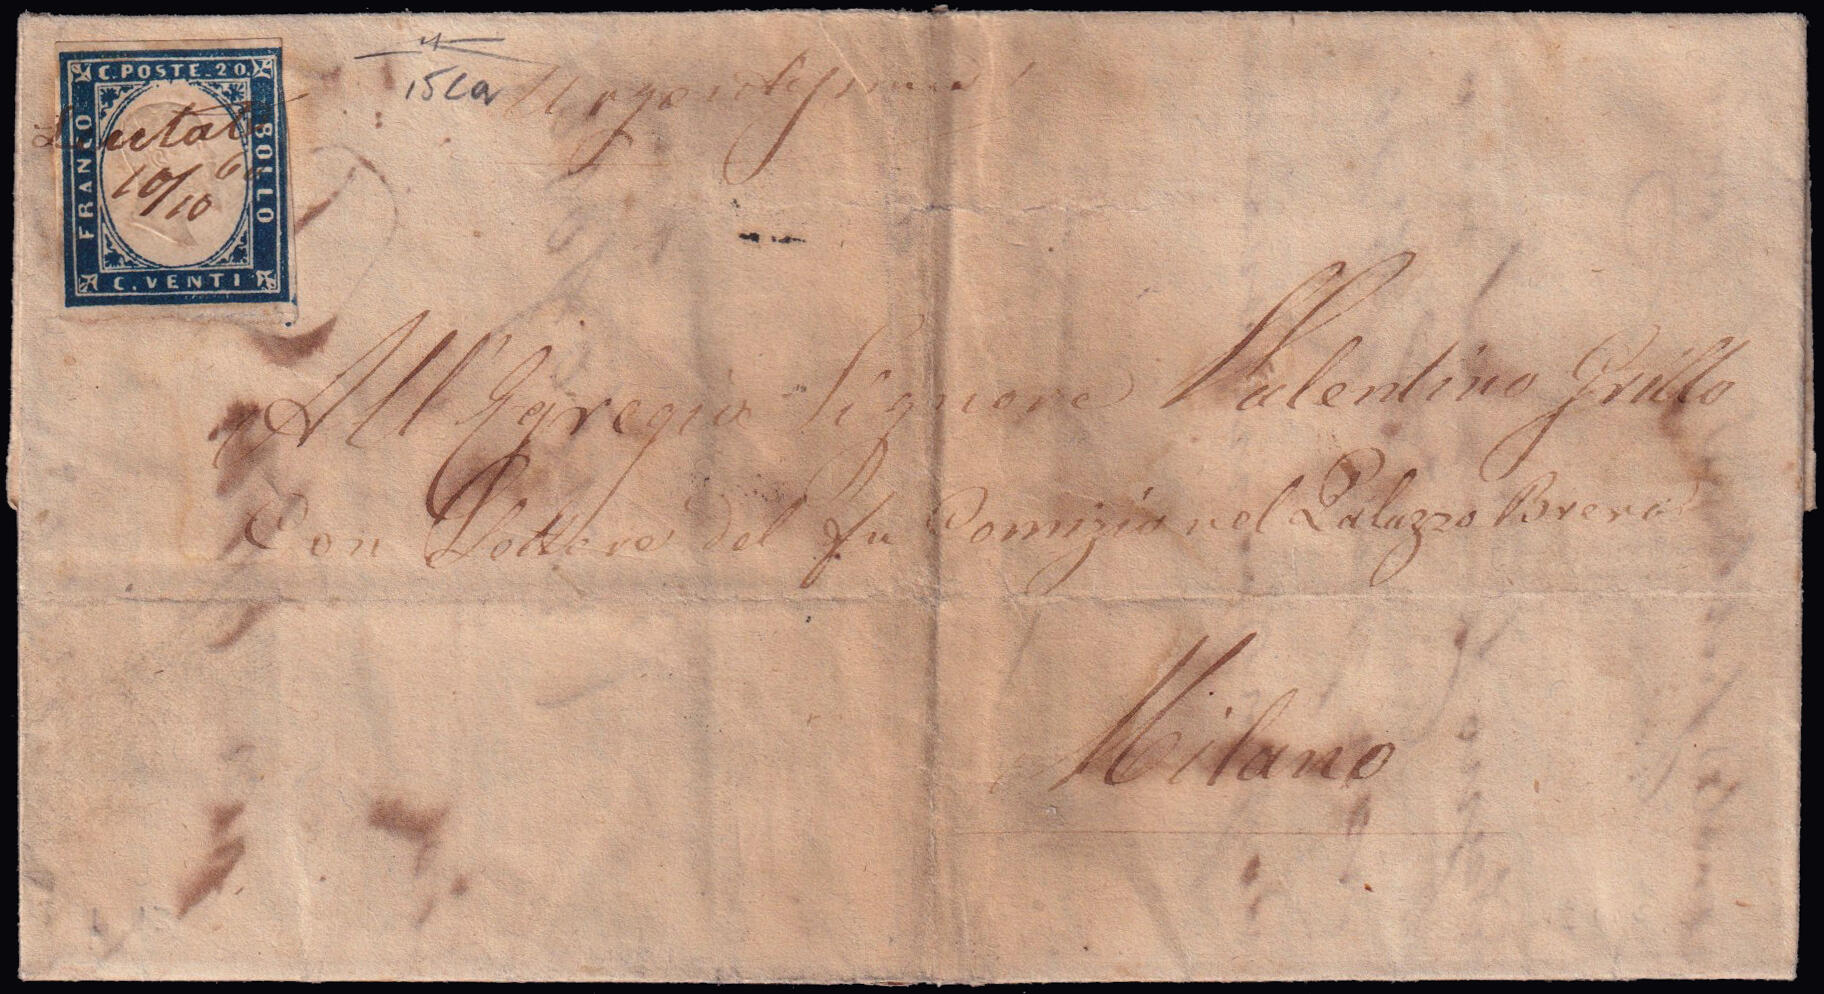 C. POSTE. 20.
FRANCO
BOLLO
C. VENTI
10/10 60
15 Ca
Urgentissima
All'Egregio Signore Valentino Grillo
Con Lettere del fu Domizio nel Palazzo Brera
Milano